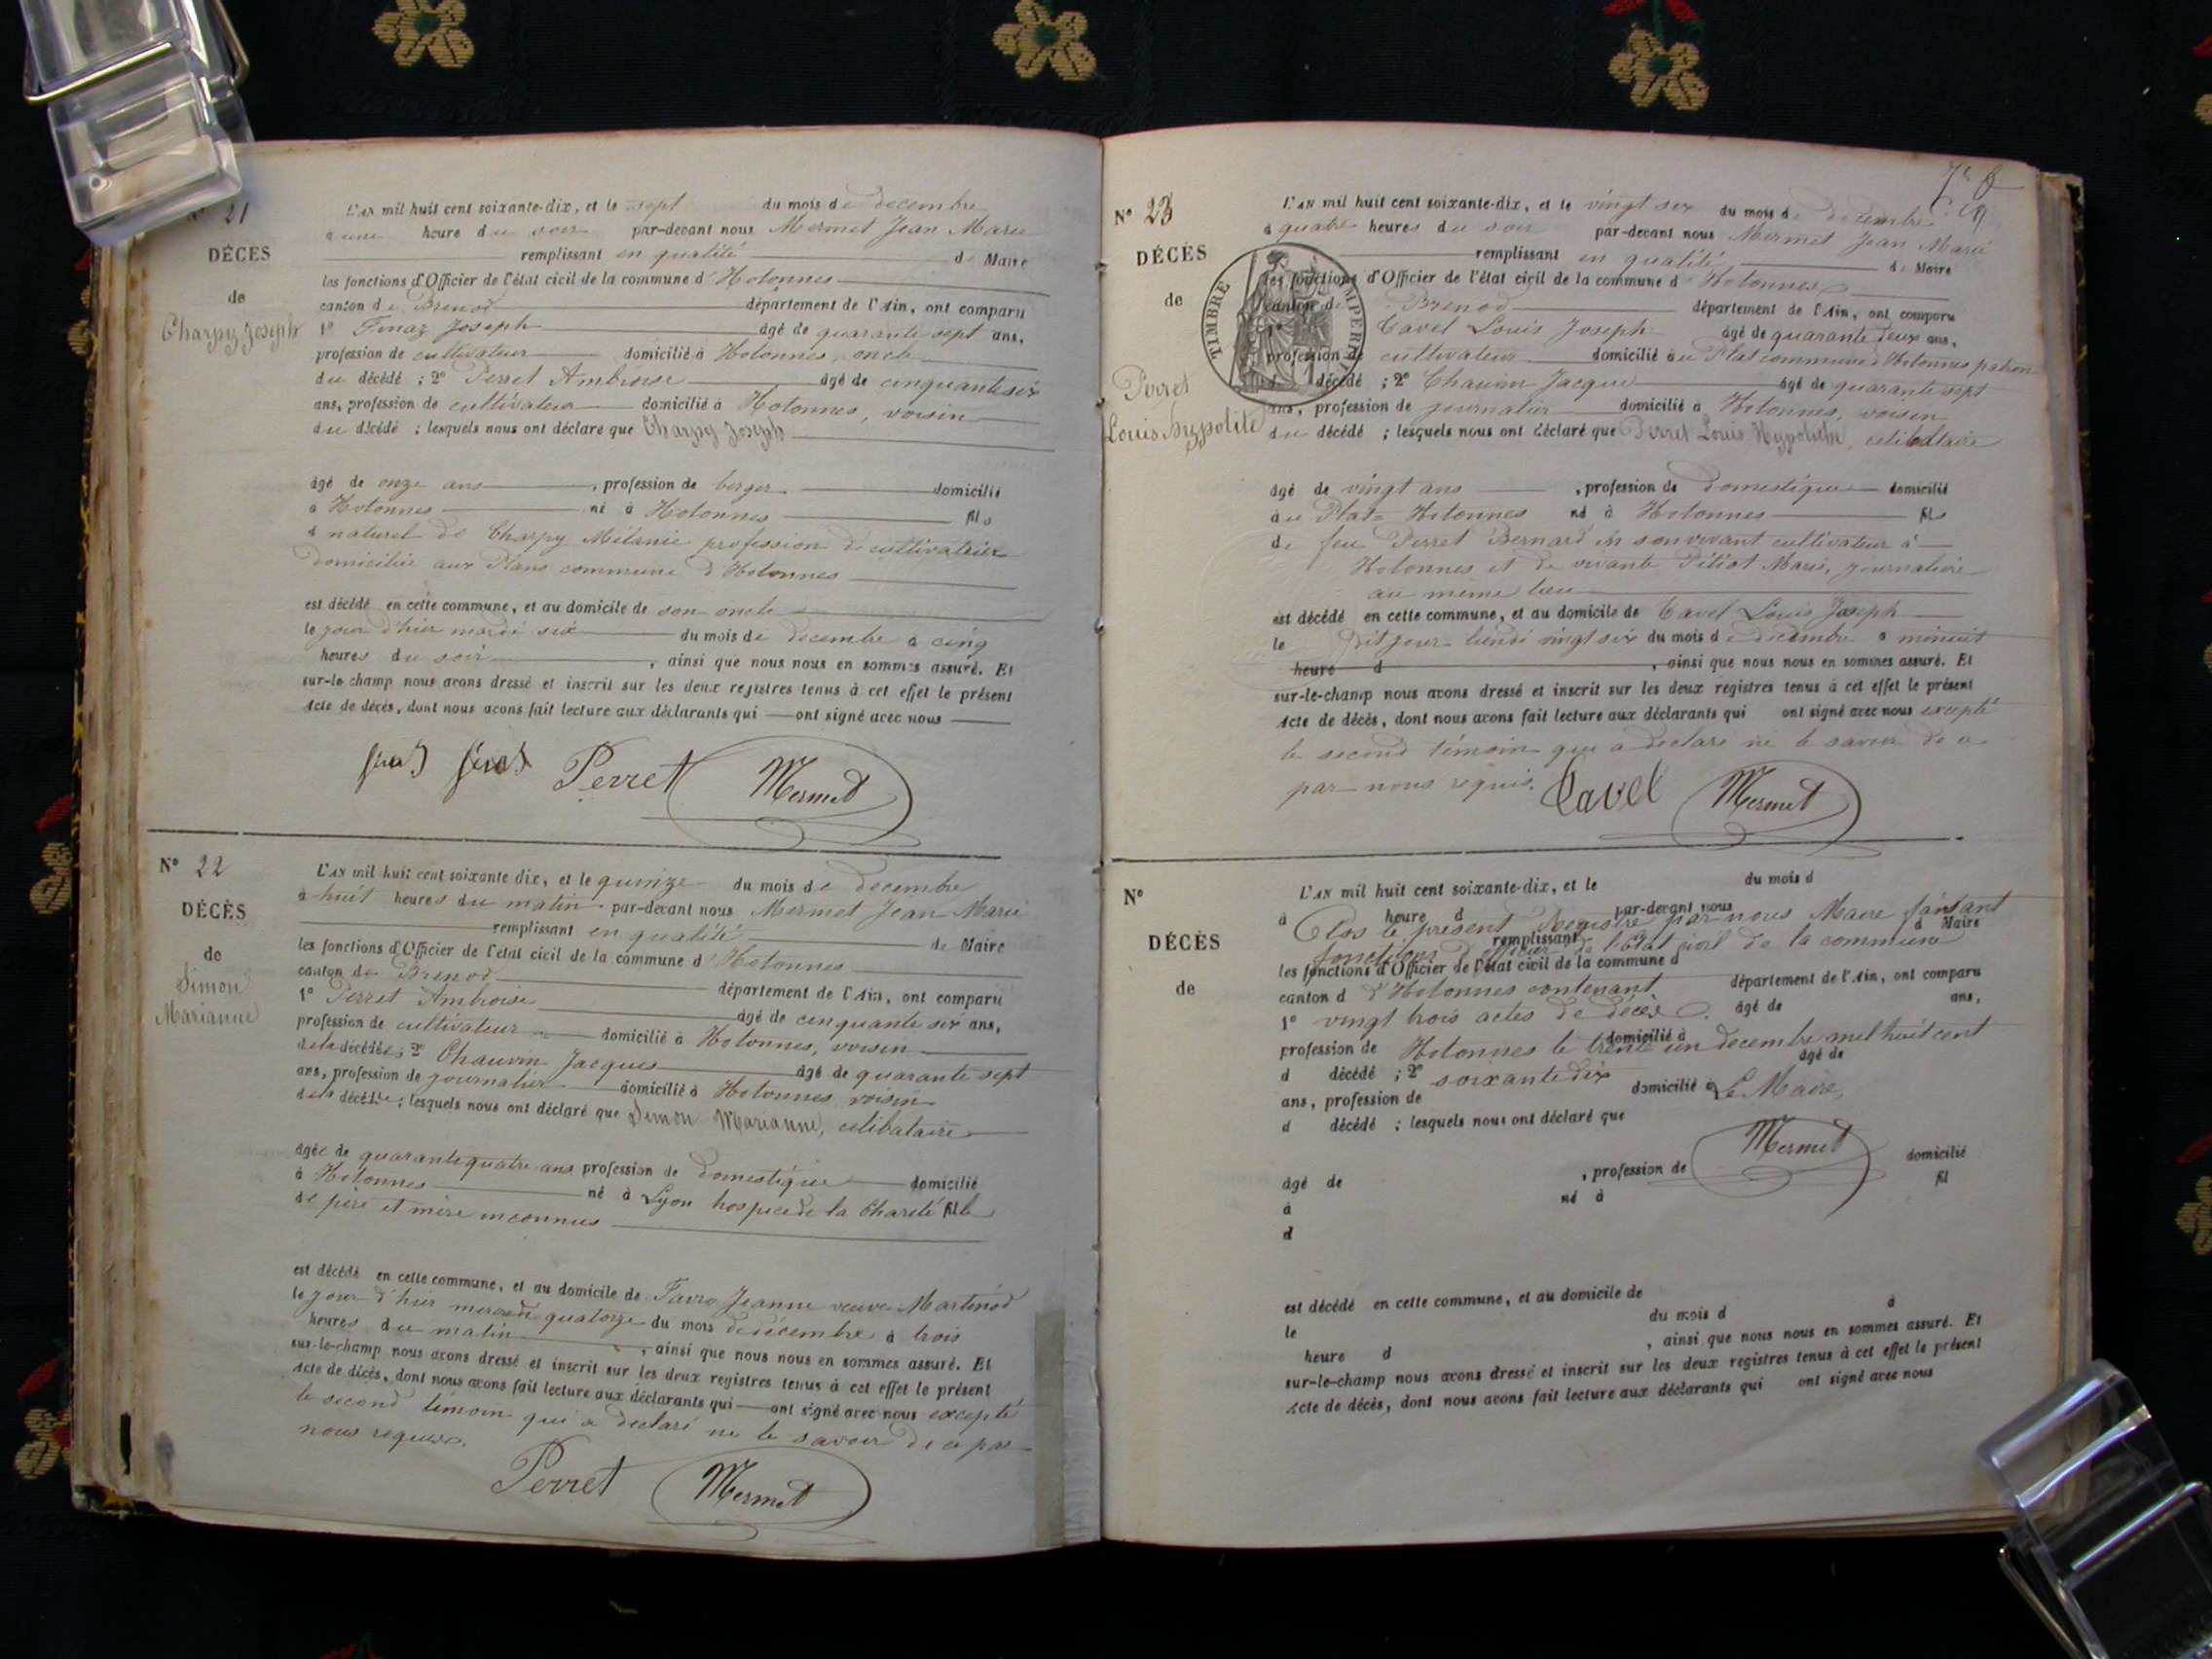 N° 21
DÉCÈS
de
Charpy Joseph
L'AN mil huit cent soixante-dix, et le sept du mois de decembre
à une heure du soir par-devant nous Mermet Jean Marie
remplissant en qualité de Maire
les fonctions d'Officier de l'état civil de la commune d'Hotonnes
canton de Brenod département de l'Ain, ont comparu
1° Finaz Joseph âgé de quarante sept ans,
profession de cultivateur domicilié à Hotonnes, oncle
du décédé ; 2° Perret Ambroise âgé de cinquante six
ans, profession de cultivateur domicilié à Hotonnes, voisin
du décédé ; lesquels nous ont déclaré que Charpy Joseph
âgé de onze ans, profession de berger domicilié
à Hotonnes né à Hotonnes fils
naturel de Charpy Mélanie profession de cultivatrice
domiciliée aux Plans commune d'Hotonnes
est décédé en cette commune, et au domicile de son oncle
le jour d'hier mardi six du mois de decembre à cinq
heures du soir, ainsi que nous nous en sommes assuré. Et
sur-le-champ nous avons dressé et inscrit sur les deux registres tenus à cet effet le présent
Acte de décès, dont nous avons fait lecture aux déclarants qui ont signé avec nous
Perret Mermet
N° 22
DÉCÈS
de
Simon
Marianne
L'AN mil huit cent soixante dix, et le quinze du mois de decembre
à huit heures du matin par-devant nous Mermet Jean Marie
remplissant en qualité de Maire
les fonctions d'Officier de l'état civil de la commune d'Hotonnes
canton de Brenod département de l'Ain, ont comparu
1° Perret Ambroise âgé de cinquante six ans,
profession de cultivateur domicilié à Hotonnes, voisin
de la décédée ; 2° Chauvin Jacques âgé de quarante sept
ans, profession de journalier domicilié à Hotonnes voisin
de la décédée ; lesquels nous ont déclaré que Simon Marianne, célibataire
âgée de quarante quatre ans profession de domestique domicilié
à Hotonnes né à Lyon hospice de la Charité fille
de père et mère inconnus
est décédé en cette commune, et au domicile de Favre Jeanne veuve Martinod
le jour d'hier mercredi quatorze du mois de décembre à trois
heures du matin, ainsi que nous nous en sommes assuré. Et
sur-le-champ nous avons dressé et inscrit sur les deux registres tenus à cet effet le présent
Acte de décès, dont nous avons fait lecture aux déclarants qui ont signé avec nous excepté
le second témoin qui a declaré ne le savoir de ce par
nous requis.
Perret Mermet
N° 23
DÉCÈS
de
Perret
Louis hypolite
TIMBRE IMPERIAL
L'AN mil huit cent soixante-dix, et le vingt six du mois de decembre
à quatre heures du soir par-devant nous Mermet Jean Marie
remplissant en qualité de Maire
les fonctions d'Officier de l'état civil de la commune d'Hotonnes
canton de Brenod département de l'Ain, ont comparu
1° Cavet Louis Joseph âgé de quarante deux ans,
profession de cultivateur domicilié au Plat commune d'Hotonnes patron
d décédé ; 2° Chauvin Jacques âgé de quarante sept
ans, profession de journalier domicilié à Hotonnes, voisin
du décédé ; lesquels nous ont déclaré que Perret Louis Hypolithe, célibataire
âgé de vingt ans, profession de domestique domicilié
au Plat Hotonnes né à Hotonnes fils
de feu Perret Bernard en son vivant cultivateur à
Hotonnes et de vivante Pitiot Marie, journalière
au même lieu
est décédé en cette commune, et au domicile de Cavet Louis Joseph
le dit jour lundi vingt six du mois de décembre à minuit
heure d, ainsi que nous nous en sommes assuré. Et
sur-le-champ nous avons dressé et inscrit sur les deux registres tenus à cet effet le présent
Acte de décès, dont nous avons fait lecture aux déclarants qui ont signé avec nous excepté
le second témoin qui a declaré ne le savoir de ce
par nous requis.
Cavet Mermet
N°
DÉCÈS
de
L'AN mil huit cent soixante-dix, et le du mois d
à heure d par-devant nous
Clos le présent Registre par nous Maire faisant
remplissant d Maire
fonctions d'officier de l'état civil de la commune
les fonctions d'Officier de l'état civil de la commune d
canton d département de l'Ain, ont comparu
d'Hotonnes contenant
1° âgé de ans,
vingt trois actes de décès.
profession de domicilié à
Hotonnes le trente un decembre mil huit cent
d décédé ; 2° âgé de
soixante dix
ans, profession de domicilié à
Le Maire,
d décédé ; lesquels nous ont déclaré que
Mermet
âgé de , profession de domicilié
à né à fil
d
est décédé en cette commune, et au domicile de
le du mois d à
heure d , ainsi que nous nous en sommes assuré. Et
sur-le-champ nous avons dressé et inscrit sur les deux registres tenus à cet effet le présent
Acte de décès, dont nous avons fait lecture aux déclarants qui ont signé avec nous